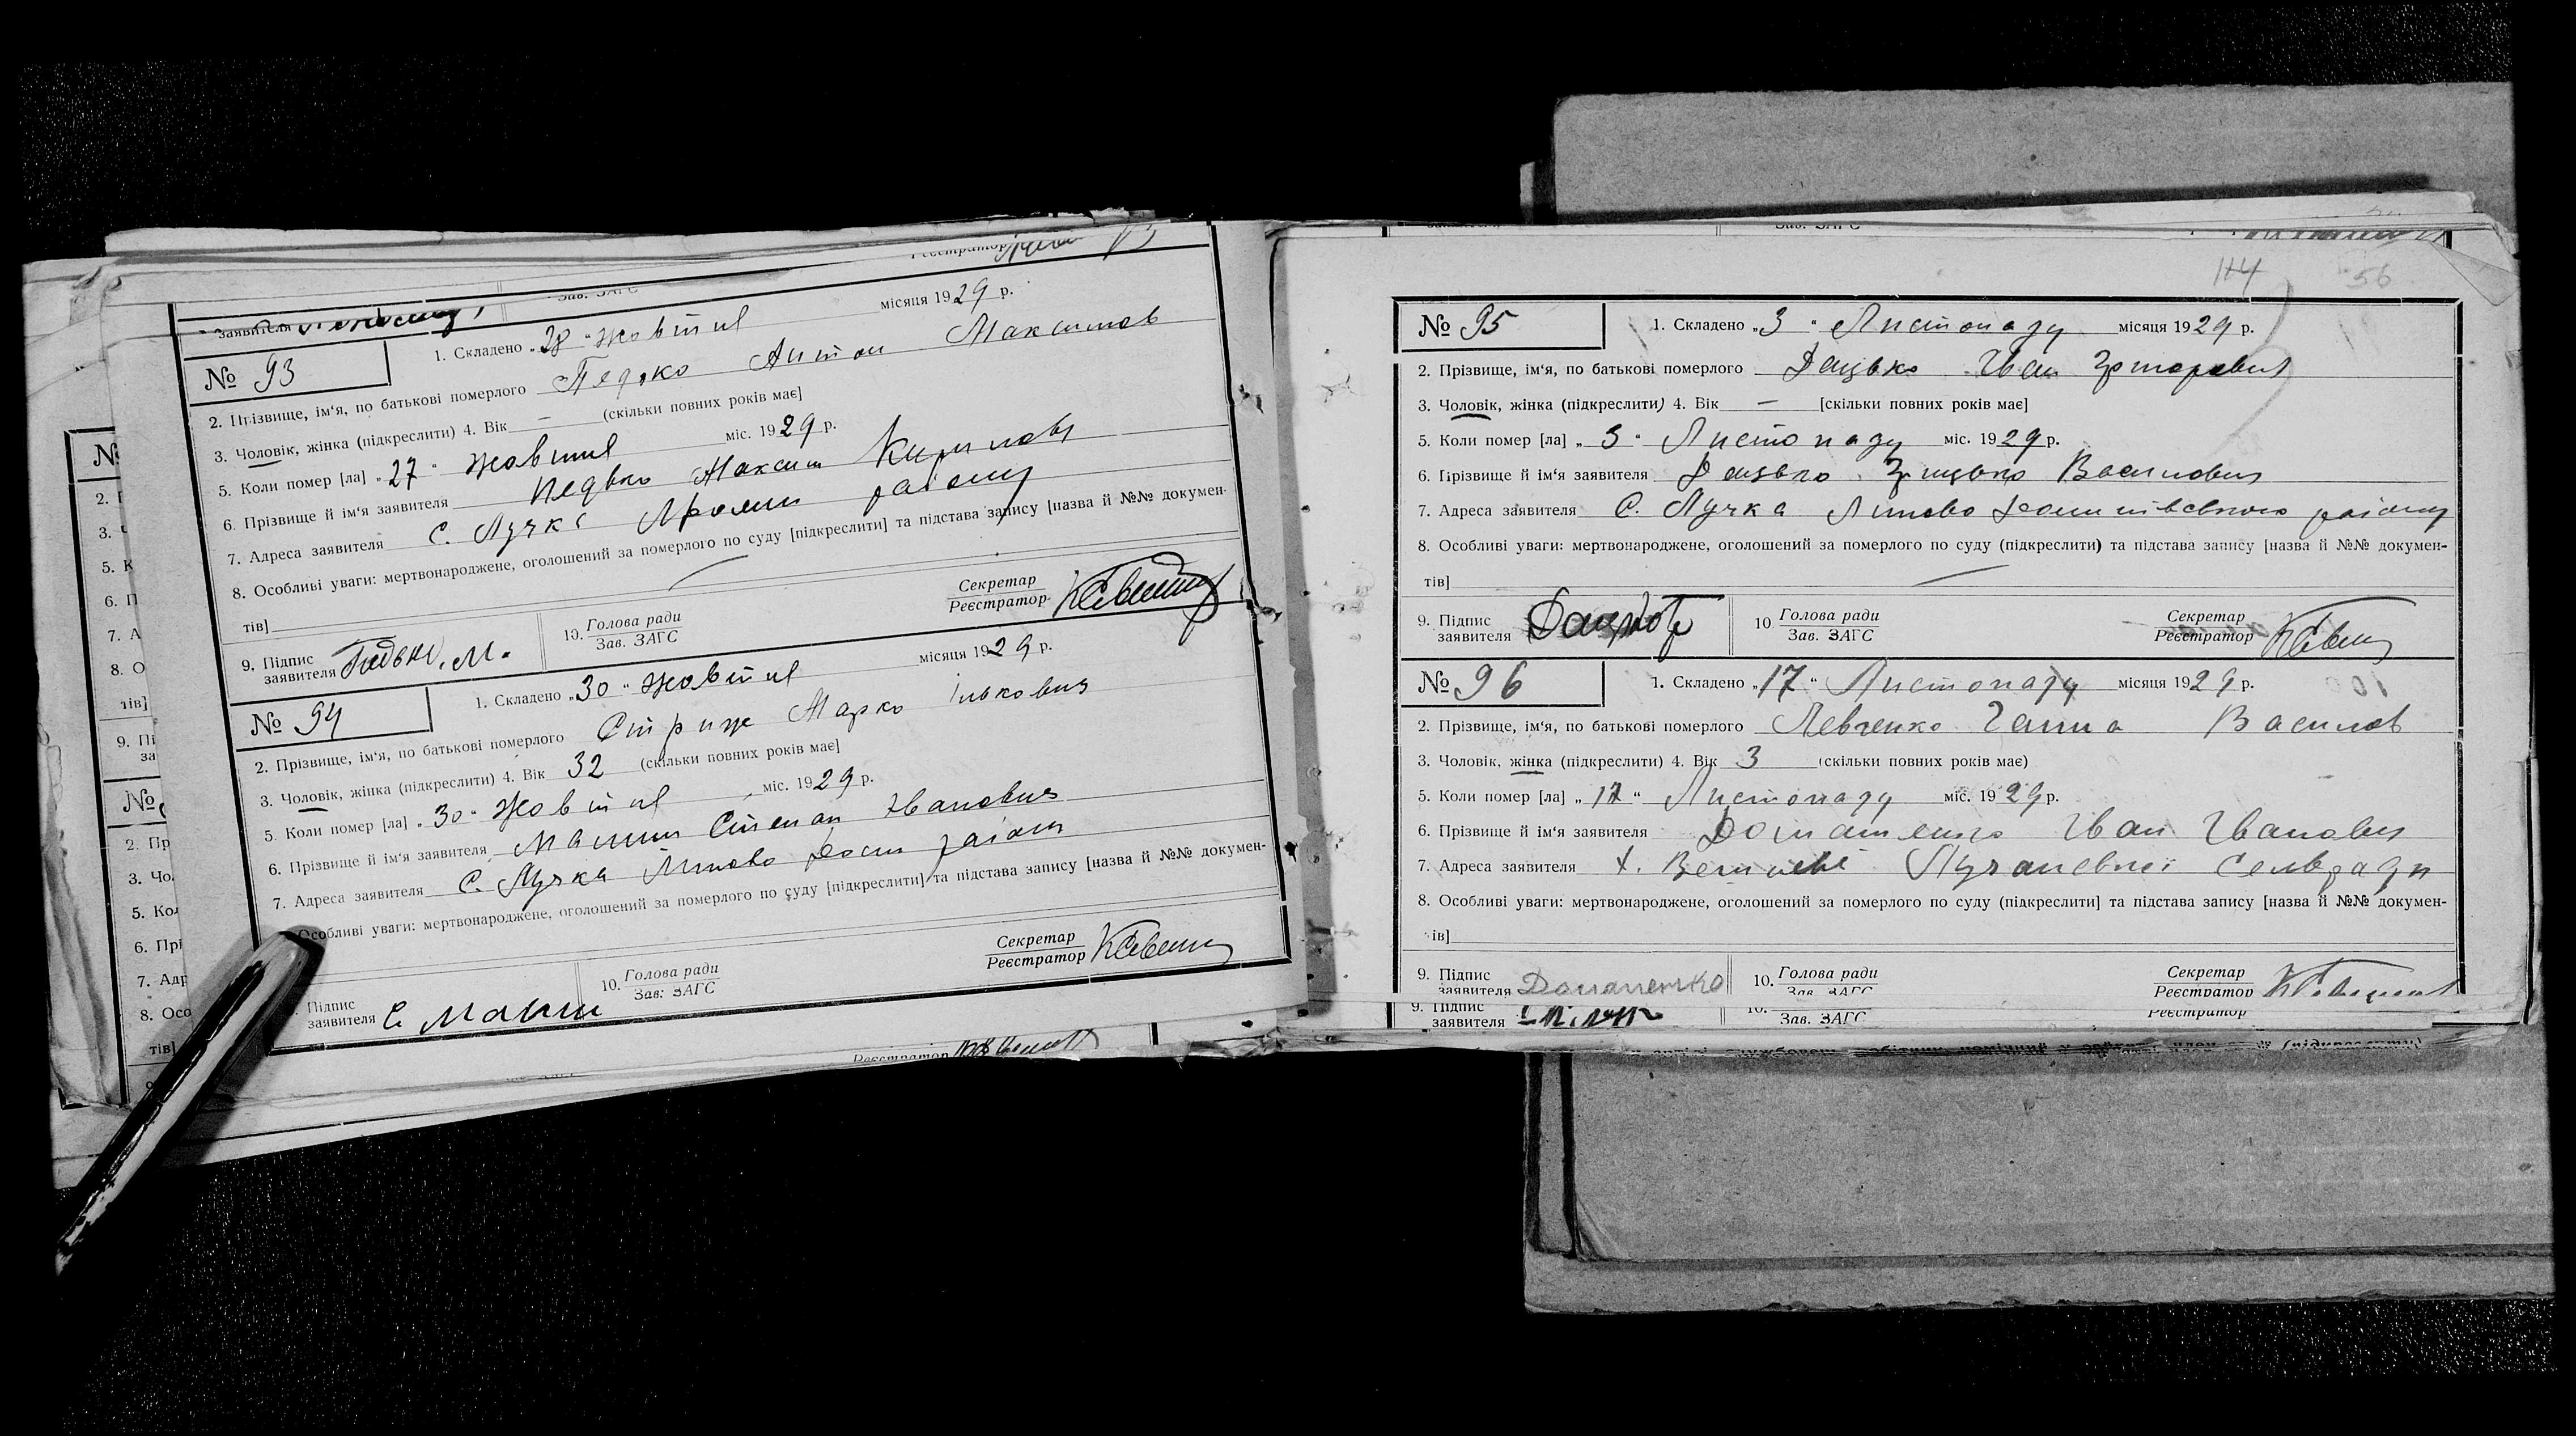 заявителя
Реєстратор
Зав. ЗАГС
№ 93
1. Складено „28“ Жовтня місяця 1929 р.
2. Прізвище, ім‘я, по батькові померлого Педько Антон Максимов
3. Чоловік, жінка (підкреслити) 4. Вік — (скільки повних років має]
5. Коли помер [ла] „27“ Жовтня міс. 1929 р.
6. Прізвище й ім‘я заявителя Педько Максим Кирилов
7. Адреса заявителя С. Лучка району
8. Особливі уваги: мертвонароджене, оголошений за померлого по суду [підкреслити] та підстава запису [назва й №№ докумен-
тів]
9. Підпис заявителя Педько. М.
10. Голова ради Зав. ЗАГС
Секретар Реєстратор
№ 94
1. Складено „30“ Жовтня місяця 1929 р.
2. Прізвище, ім‘я, по батькові померлого Стриж Марко Ількович
3. Чоловік, жінка (підкреслити) 4. Вік 32 (скільки повних років має]
5. Коли помер [ла] „30“ Жовтня міс. 1929 р.
6. Прізвище й ім‘я заявителя Степан Иванович
7. Адреса заявителя С. Лучка Липово Долин району
Особливі уваги: мертвонароджене, оголошений за померлого по суду [підкреслити] та підстава запису [назва й №№ докумен-
Підпис заявителя С.
10. Голова ради Зав. ЗАГС
Секретар Реєстратор
Реєстратор
114
56
№ 95
1. Складено „3“ Листопаду місяця 1929 р.
2. Прізвище, ім‘я, по батькові померлого Дацько Іван Григорович
3. Чоловік, жінка (підкреслити) 4. Вік — [скільки повних років має]
5. Коли помер [ла] „3“ Листопаду міс. 1929 р.
6. Прізвище й ім‘я заявителя Дацько Грицько Васильович
7. Адреса заявителя С. Лучка Липово Долинівського району
8. Особливі уваги: мертвонароджене, оголошений за померлого по суду (підкреслити) та підстава запису [назва й №№ докумен-
тів]
9. Підпис заявителя
10. Голова ради Зав. ЗАГС
Секретар Реєстратор
№ 96
1. Складено „17“ Листопаду місяця 1929 р.
2. Прізвище, ім‘я, по батькові померлого Левченко Ганна Василов
3. Чоловік, жінка (підкреслити) 4. Вік 3 (скільки повних років має)
5. Коли помер [ла] „17“ Листопаду міс. 1929 р.
6. Прізвище й ім‘я заявителя Доманенко Іван Іванович
7. Адреса заявителя х. Лучанської Сельради
8. Особливі уваги: мертвонароджене, оголошений за померлого по суду (підкреслити] та підстава запису [назва й №№ докумен-
ів]
9. Підпис заявителя Доманенко
10. Голова ради Зав. ЗАГС
Секретар Реєстратор
9. Підпис заявителя
10.
Зав. ЗАГС
Реєстратор